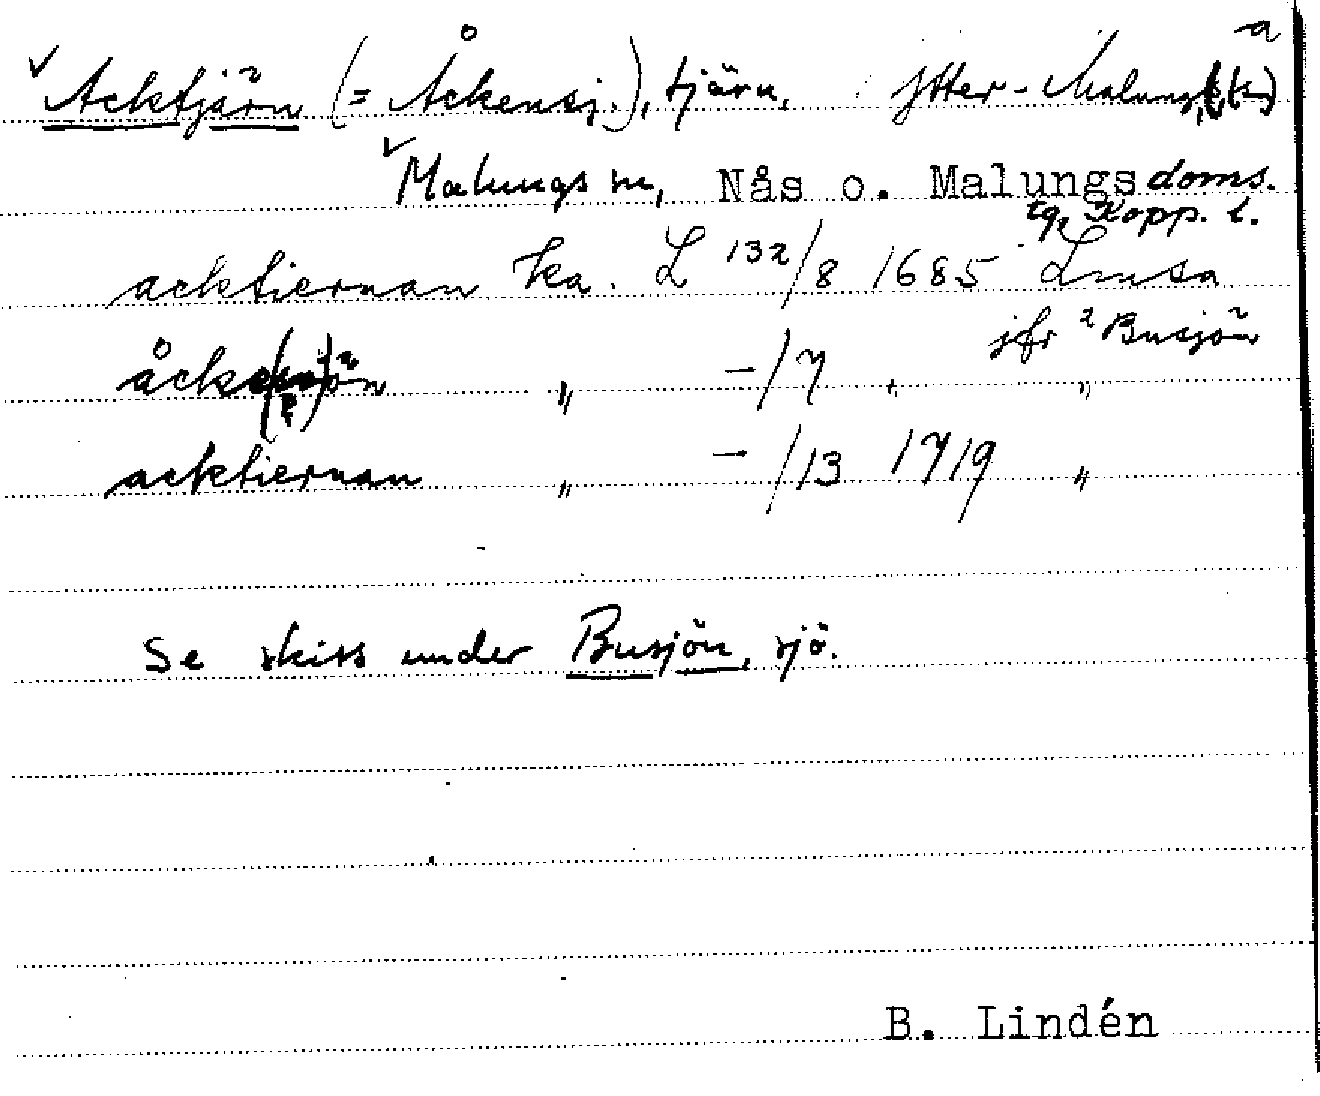 Acktjärn (= Åckensj.), tjärn, Ytter-Malung
Malungs sn, Nås o. Malungs doms.
tg, Kopp. l.
acktiernan ka. L 132/8 1685 Limsa
jfr Busjön
åck „ —/7 „ „
acktiernan „ —/13 1719 „
Se skiss under Busjön, sjö.
B. Lindén